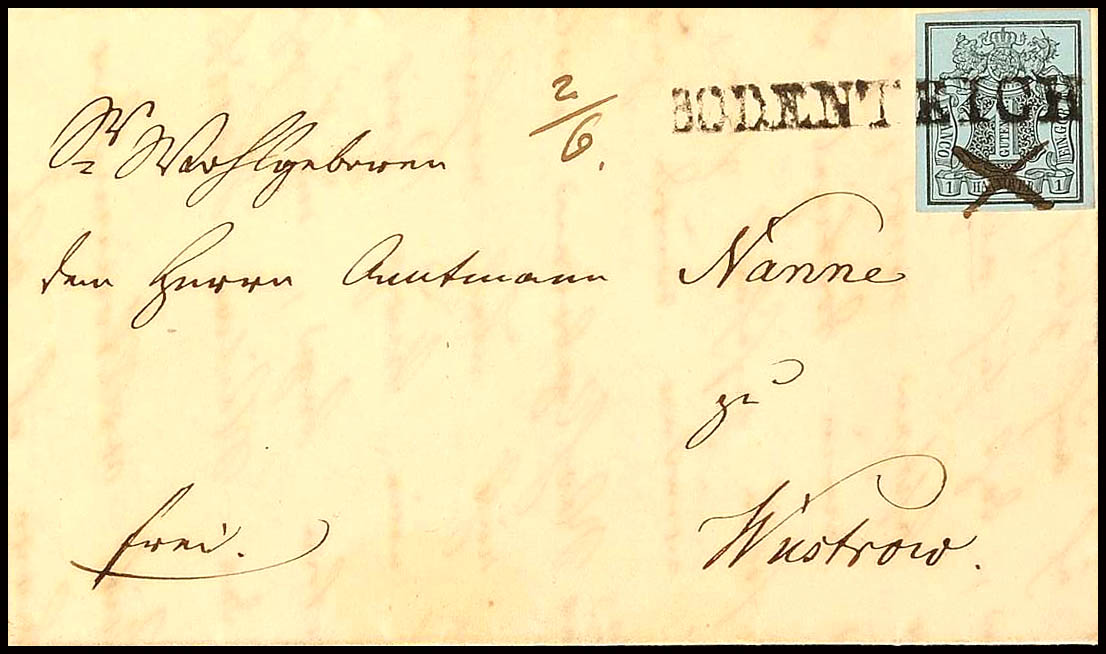 BODENTEICH
2/6.
Sr Wohlgeboren
dem Herrn Amtmann Nanne
zu
Wustrow.
frei.
1 GUTENGR
1 HANNOVER 1